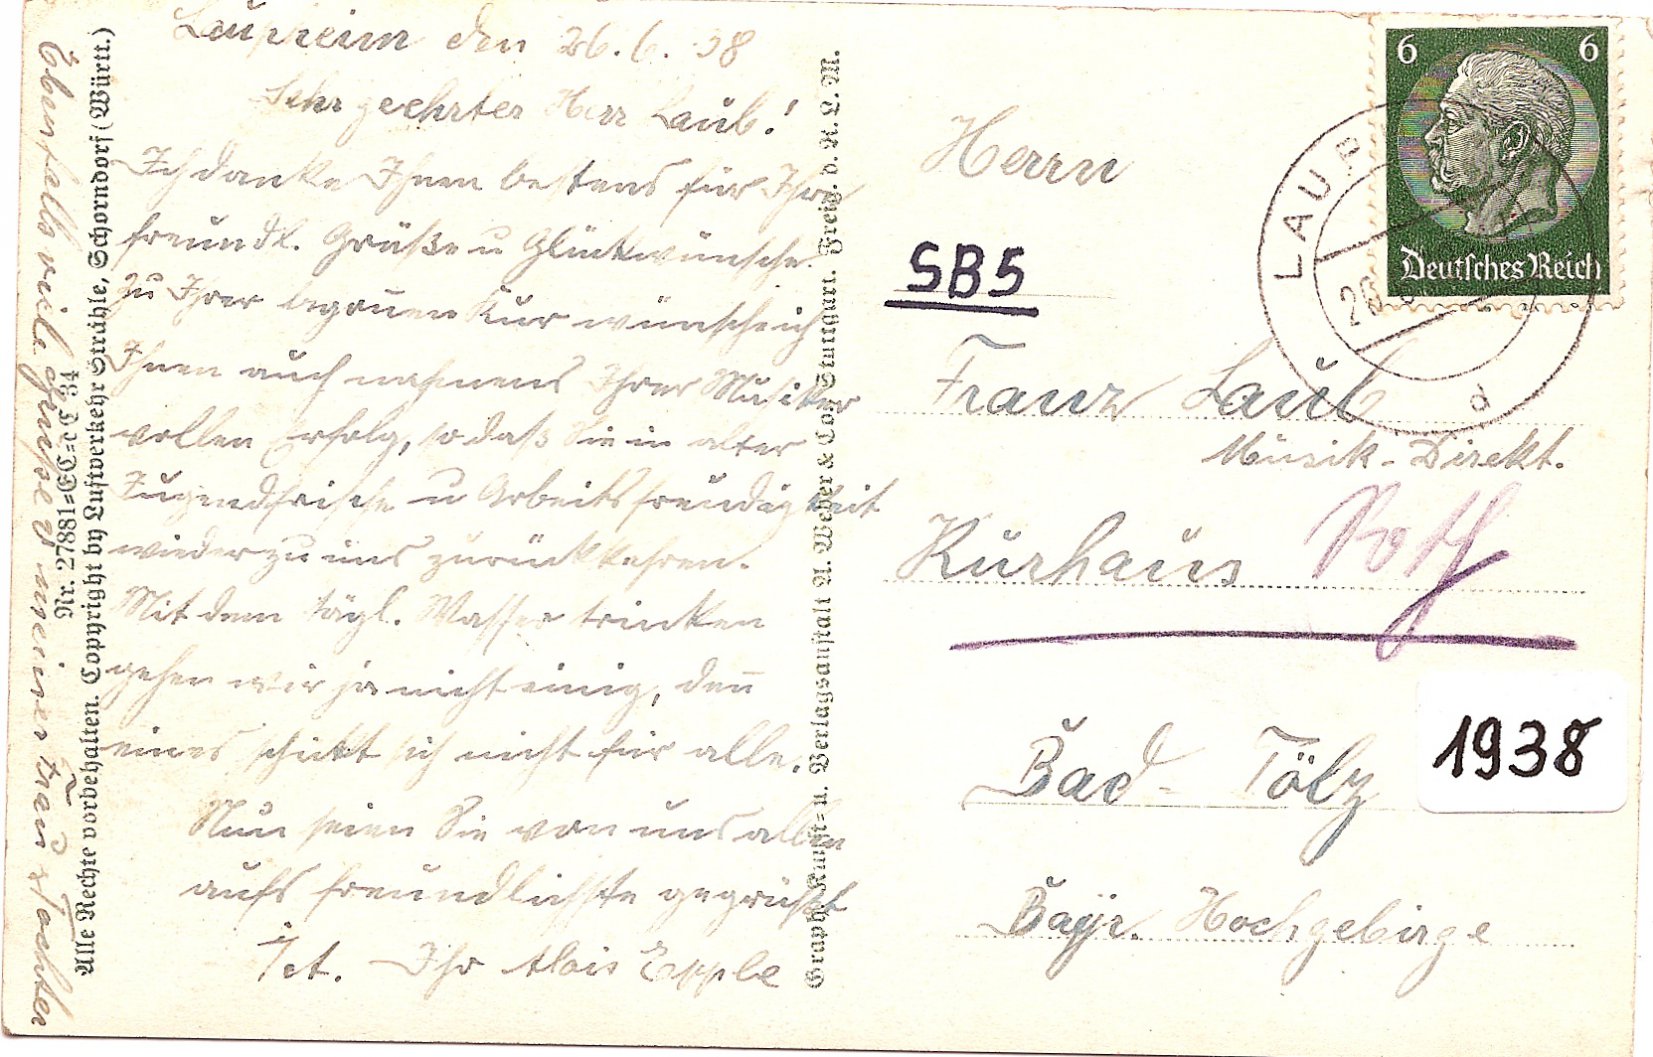 Laupheim den 26.6.38
Sehr geehrter Herr Laub!
Ich danke Ihnen bestens für Ihre
freundl. Grüße u Glückwünsche.
Zu Ihrer Kur wünsche ich
Ihnen auch nahmens Ihrer Musiker
vollen Erfolg, so daß Sie in alter
Jugendfrische u Arbeitsfreudigkeit
wieder zu uns zurückkehren.
Mit dem tägl. Wasser trinken
gehen wir ja nicht einig, den̄
eines schickt sich nicht für alle.
Nun seien Sie von uns allen
aufs freundlichste gegrüßt
Ihr Alois Epple
Ebenfalls viele Grüße v meiner Frau u Tochter
Nr. 27881=EC=dC 34
Alle Rechte vorbehalten. Copyright by Luftverkehr Strähle, Schorndorf (Württ.)
Graph. Kunst= u. Verlagsanstalt A. Weber & Co., Stuttgart. Freig. d. R. L. M.
6 6
Deutsches Reich
LAUP
d
Herrn
SB5
Franz Laub
Musik-Direkt.
Kurhaus Roth
Bad-Tölz
1938
Bayr. Hochgebirge